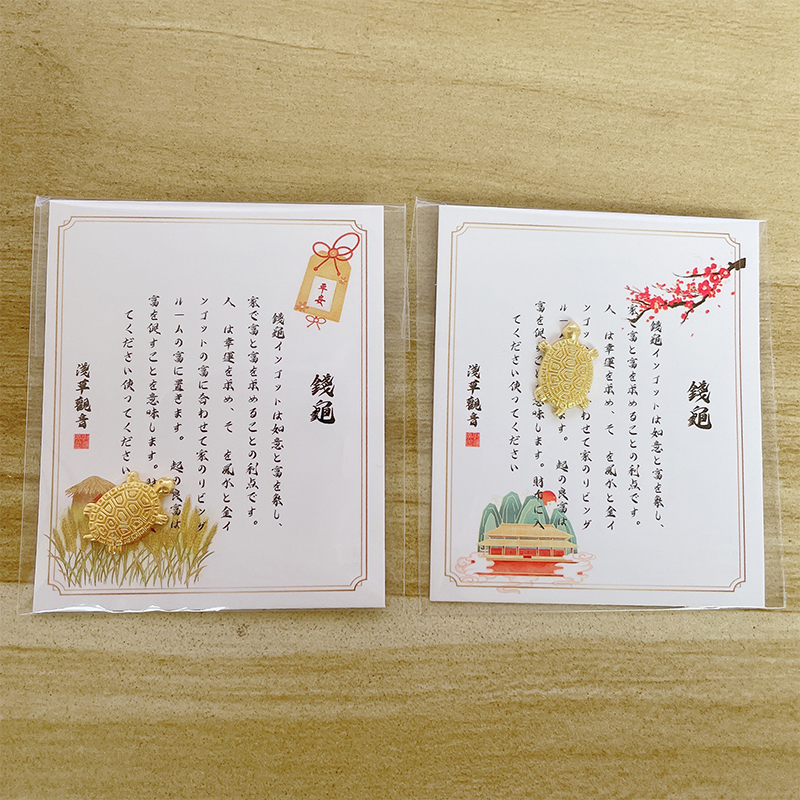 平安
錢龜
錢龜インゴットは如意と富を象し、
家で富と富を求めることの利点です。
人 は幸運を求め、そ を風水と金イ
ンゴットの富に合わせて家のリビング
ルームの富に置きます。 起の良富は
富を促すことを意味します。財
てください使ってください
淺草觀音
錢龜
錢龜インゴットは如意と富を象し、
家で富と富を求めることの利点です。
人 は幸運を求め、そ を風水と金イ
ンゴット わせて家のリビング
ル ます。 起の良富は
富を 意味します。財布に入
てください使ってください
淺草觀音